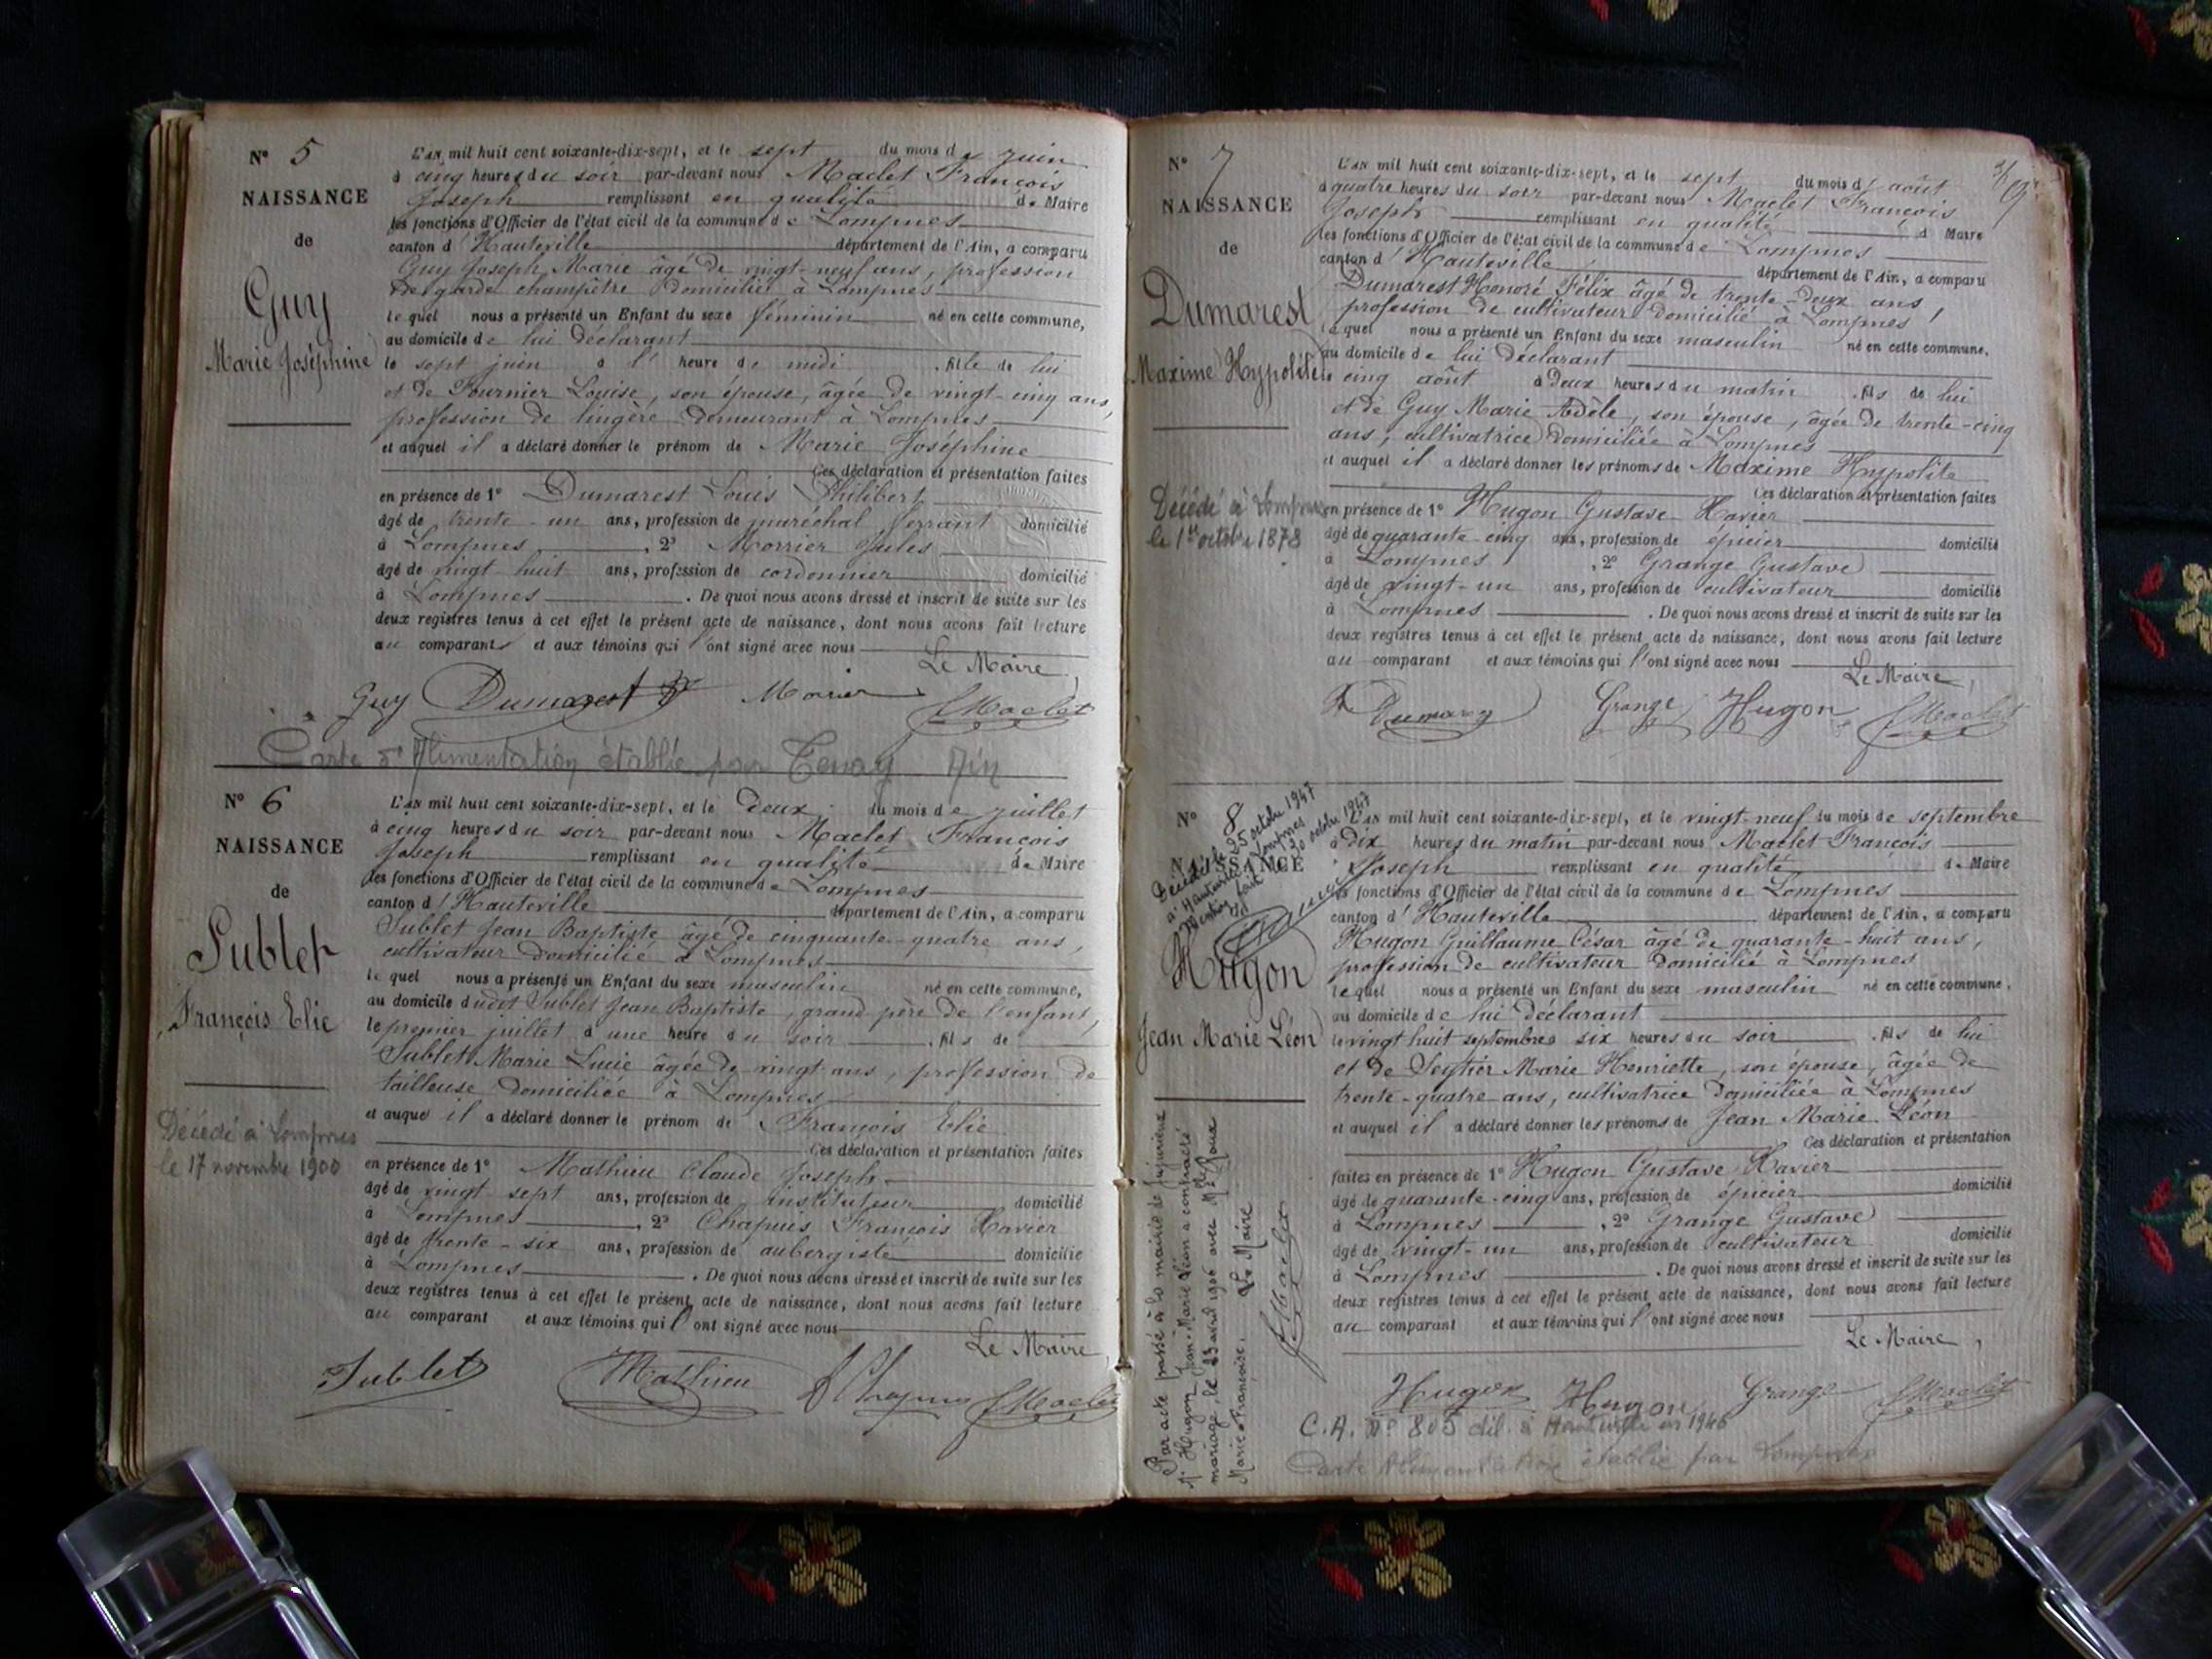 N° 5
NAISSANCE
de
Guy
Marie Joséphine
L'AN mil huit cent soixante-dix-sept, et le sept du mois de juin
à cinq heures du soir par-devant nous Maclet François
Joseph remplissant en qualité de Maire
les fonctions d'Officier de l'état civil de la commune de Lompnes
canton d'Hauteville département de l'Ain, a comparu
Guy Joseph Marie âgé de vingt-neuf ans, profession
de garde champêtre domicilié à Lompnes
lequel nous a présenté un Enfant du sexe féminin né en cette commune,
au domicile de lui déclarant
le sept juin à l'heure de midi fille de lui
et de Fournier Louise, son épouse, âgée de vingt-cinq ans,
profession de lingère demeurant à Lompnes
et auquel il a déclaré donner le prénom de Marie Joséphine
Ces déclaration et présentation faites
en présence de 1° Dumarest Louis Philibert
âgé de trente-un ans, profession de maréchal ferrant domicilié
à Lompnes, 2° Morrier Jules
âgé de vingt huit ans, profession de cordonnier domicilié
à Lompnes. De quoi nous avons dressé et inscrit de suite sur les
deux registres tenus à cet effet le présent acte de naissance, dont nous avons fait lecture
au comparant et aux témoins qui l'ont signé avec nous
Le Maire,
Guy Dumarest Morrier Maclet
Carte d'Alimentation établie par Tenay Ain
N° 6
NAISSANCE
de
Sublet
François Elie
Décédé à Lompnes
le 17 novembre 1900
L'AN mil huit cent soixante-dix-sept, et le deux du mois de juillet
à cinq heures du soir par-devant nous Maclet François
Joseph remplissant en qualité de Maire
les fonctions d'Officier de l'état civil de la commune de Lompnes
canton d'Hauteville département de l'Ain, a comparu
Sublet Jean Baptiste âgé de cinquante-quatre ans,
cultivateur domicilié à Lompnes
lequel nous a présenté un Enfant du sexe masculin né en cette commune,
au domicile dudit Sublet Jean Baptiste, grand père de l'enfant,
le premier juillet à une heure du soir. fils de
Sublet Marie Lucie âgée de vingt ans, profession de
tailleuse domiciliée à Lompnes
et auquel il a déclaré donner le prénom de François Elie
Ces déclaration et présentation faites
en présence de 1° Mathieu Claude Joseph
âgé de vingt sept ans, profession de instituteur domicilié
à Lompnes, 2° Chapuis François Xavier
âgé de trente-six ans, profession de aubergiste domicilié
à Lompnes. De quoi nous avons dressé et inscrit de suite sur les
deux registres tenus à cet effet le présent acte de naissance, dont nous avons fait lecture
au comparant et aux témoins qui l'ont signé avec nous
Le Maire,
Sublet Mathieu Chapuis Maclet
N° 7
NAISSANCE
de
Dumarest
Maxime Hypolite
Décédé à Lompnes
le 1er octobre 1878
L'AN mil huit cent soixante-dix-sept, et le sept du mois d'août
à quatre heures du soir par-devant nous Maclet François
Joseph remplissant en qualité d Maire
les fonctions d'Officier de l'état civil de la commune de Lompnes
canton d'Hauteville département de l'Ain, a comparu
Dumarest Honoré Félix âgé de trente-deux ans,
profession de cultivateur domicilié à Lompnes
lequel nous a présenté un Enfant du sexe masculin né en cette commune,
au domicile de lui déclarant
le cinq août à deux heures du matin. fils de lui
et de Guy Marie Adèle, son épouse, âgée de trente-cinq
ans, cultivatrice domiciliée à Lompnes
et auquel il a déclaré donner les prénoms de Maxime Hypolite
Ces déclaration et présentation faites
en présence de 1° Hugon Gustave Xavier
âgé de quarante cinq ans, profession de épicier domicilié
à Lompnes, 2° Grange Gustave
âgé de vingt-un ans, profession de cultivateur domicilié
à Lompnes. De quoi nous avons dressé et inscrit de suite sur les
deux registres tenus à cet effet le présent acte de naissance, dont nous avons fait lecture
au comparant et aux témoins qui l'ont signé avec nous
Le Maire,
Grange Hugon Maclet
N° 8
NAISSANCE
Décédé le 25 octobre 1947
à Hauteville-Lompnes
Mention fait 30 octobre 1947
Hugon
Jean Marie Léon
Par acte passé à la mairie de Jujurieux
Mr Hugon Jean-Marie Léon a contracté
mariage, le 23 avril 1906 avec Mlle Roux
Marie Françoise. Le Maire
Maclet
L'AN mil huit cent soixante-dix-sept, et le vingt-neuf du mois de septembre
à dix heures du matin par-devant nous Maclet François
Joseph remplissant en qualité de Maire
les fonctions d'Officier de l'état civil de la commune de Lompnes
canton d'Hauteville département de l'Ain, a comparu
Hugon Guillaume César âgé de quarante-huit ans,
profession de cultivateur domicilié à Lompnes
lequel nous a présenté un Enfant du sexe masculin né en cette commune,
au domicile de lui déclarant
le vingt huit septembre à six heures du soir. fils de lui
et de Seytier Marie Henriette, son épouse, âgée de
trente-quatre ans, cultivatrice domiciliée à Lompnes
et auquel il a déclaré donner les prénoms de Jean Marie Léon
Ces déclaration et présentation
faites en présence de 1° Hugon Gustave Xavier
âgé de quarante-cinq ans, profession de épicier domicilié
à Lompnes, 2° Grange Gustave
âgé de vingt-un ans, profession de cultivateur domicilié
à Lompnes. De quoi nous avons dressé et inscrit de suite sur les
deux registres tenus à cet effet le présent acte de naissance, dont nous avons fait lecture
au comparant et aux témoins qui l'ont signé avec nous
Le Maire,
Hugon Hugon Grange Maclet
C.A. N° 805 dél. à Hauteville en 1946
Carte Alimentation établie par Lompnes